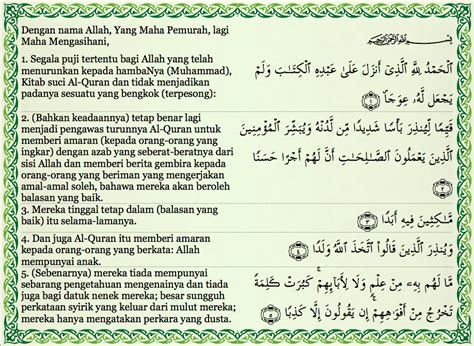 Dengan nama Allah, Yang Maha Pemurah, lagi
Maha Mengasihani,
بِسْمِ اللَّهِ الرَّحْمَٰنِ الرَّحِيمِ
1. Segala puji tertentu bagi Allah yang telah
menurunkan kepada hambaNya (Muhammad),
Kitab suci Al-Quran dan tidak menjadikan
padanya sesuatu yang bengkok (terpesong):
ٱلْحَمْدُ لِلَّهِ ٱلَّذِىٓ أَنزَلَ عَلَىٰ عَبْدِهِ ٱلْكِتَـٰبَ وَلَمْ
يَجْعَل لَّهُۥ عِوَجَا ۜ ١
2. (Bahkan keadaannya) tetap benar lagi
menjadi pengawas turunnya Al-Quran untuk
memberi amaran (kepada orang-orang yang
ingkar) dengan azab yang seberat-beratnya dari
sisi Allah dan memberi berita gembira kepada
orang-orang yang beriman yang mengerjakan
amal-amal soleh, bahawa mereka akan beroleh
balasan yang baik.
قَيِّمًا لِّيُنذِرَ بَأْسًا شَدِيدًا مِّن لَّدُنْهُ وَيُبَشِّرَ ٱلْمُؤْمِنِينَ
ٱلَّذِينَ يَعْمَلُونَ ٱلصَّـٰلِحَـٰتِ أَنَّ لَهُمْ أَجْرًا حَسَنًا
٢
3. Mereka tinggal tetap dalam (balasan yang
baik) itu selama-lamanya.
مَّـٰكِثِينَ فِيهِ أَبَدًا ٣
4. Dan juga Al-Quran itu memberi amaran
kepada orang-orang yang berkata: Allah
mempunyai anak.
وَيُنذِرَ ٱلَّذِينَ قَالُوا۟ ٱتَّخَذَ ٱللَّهُ وَلَدًا ٤
5. (Sebenarnya) mereka tiada mempunyai
sebarang pengetahuan mengenainya dan tiada
juga bagi datuk nenek mereka; besar sungguh
perkataan syirik yang keluar dari mulut mereka;
mereka hanya mengatakan perkara yang dusta.
مَّا لَهُم بِهِۦ مِنْ عِلْمٍ وَلَا لِـَٔابَآئِهِمْ ۚ كَبُرَتْ كَلِمَةً
تَخْرُجُ مِنْ أَفْوَٰهِهِمْ ۚ إِن يَقُولُونَ إِلَّا كَذِبًا ٥